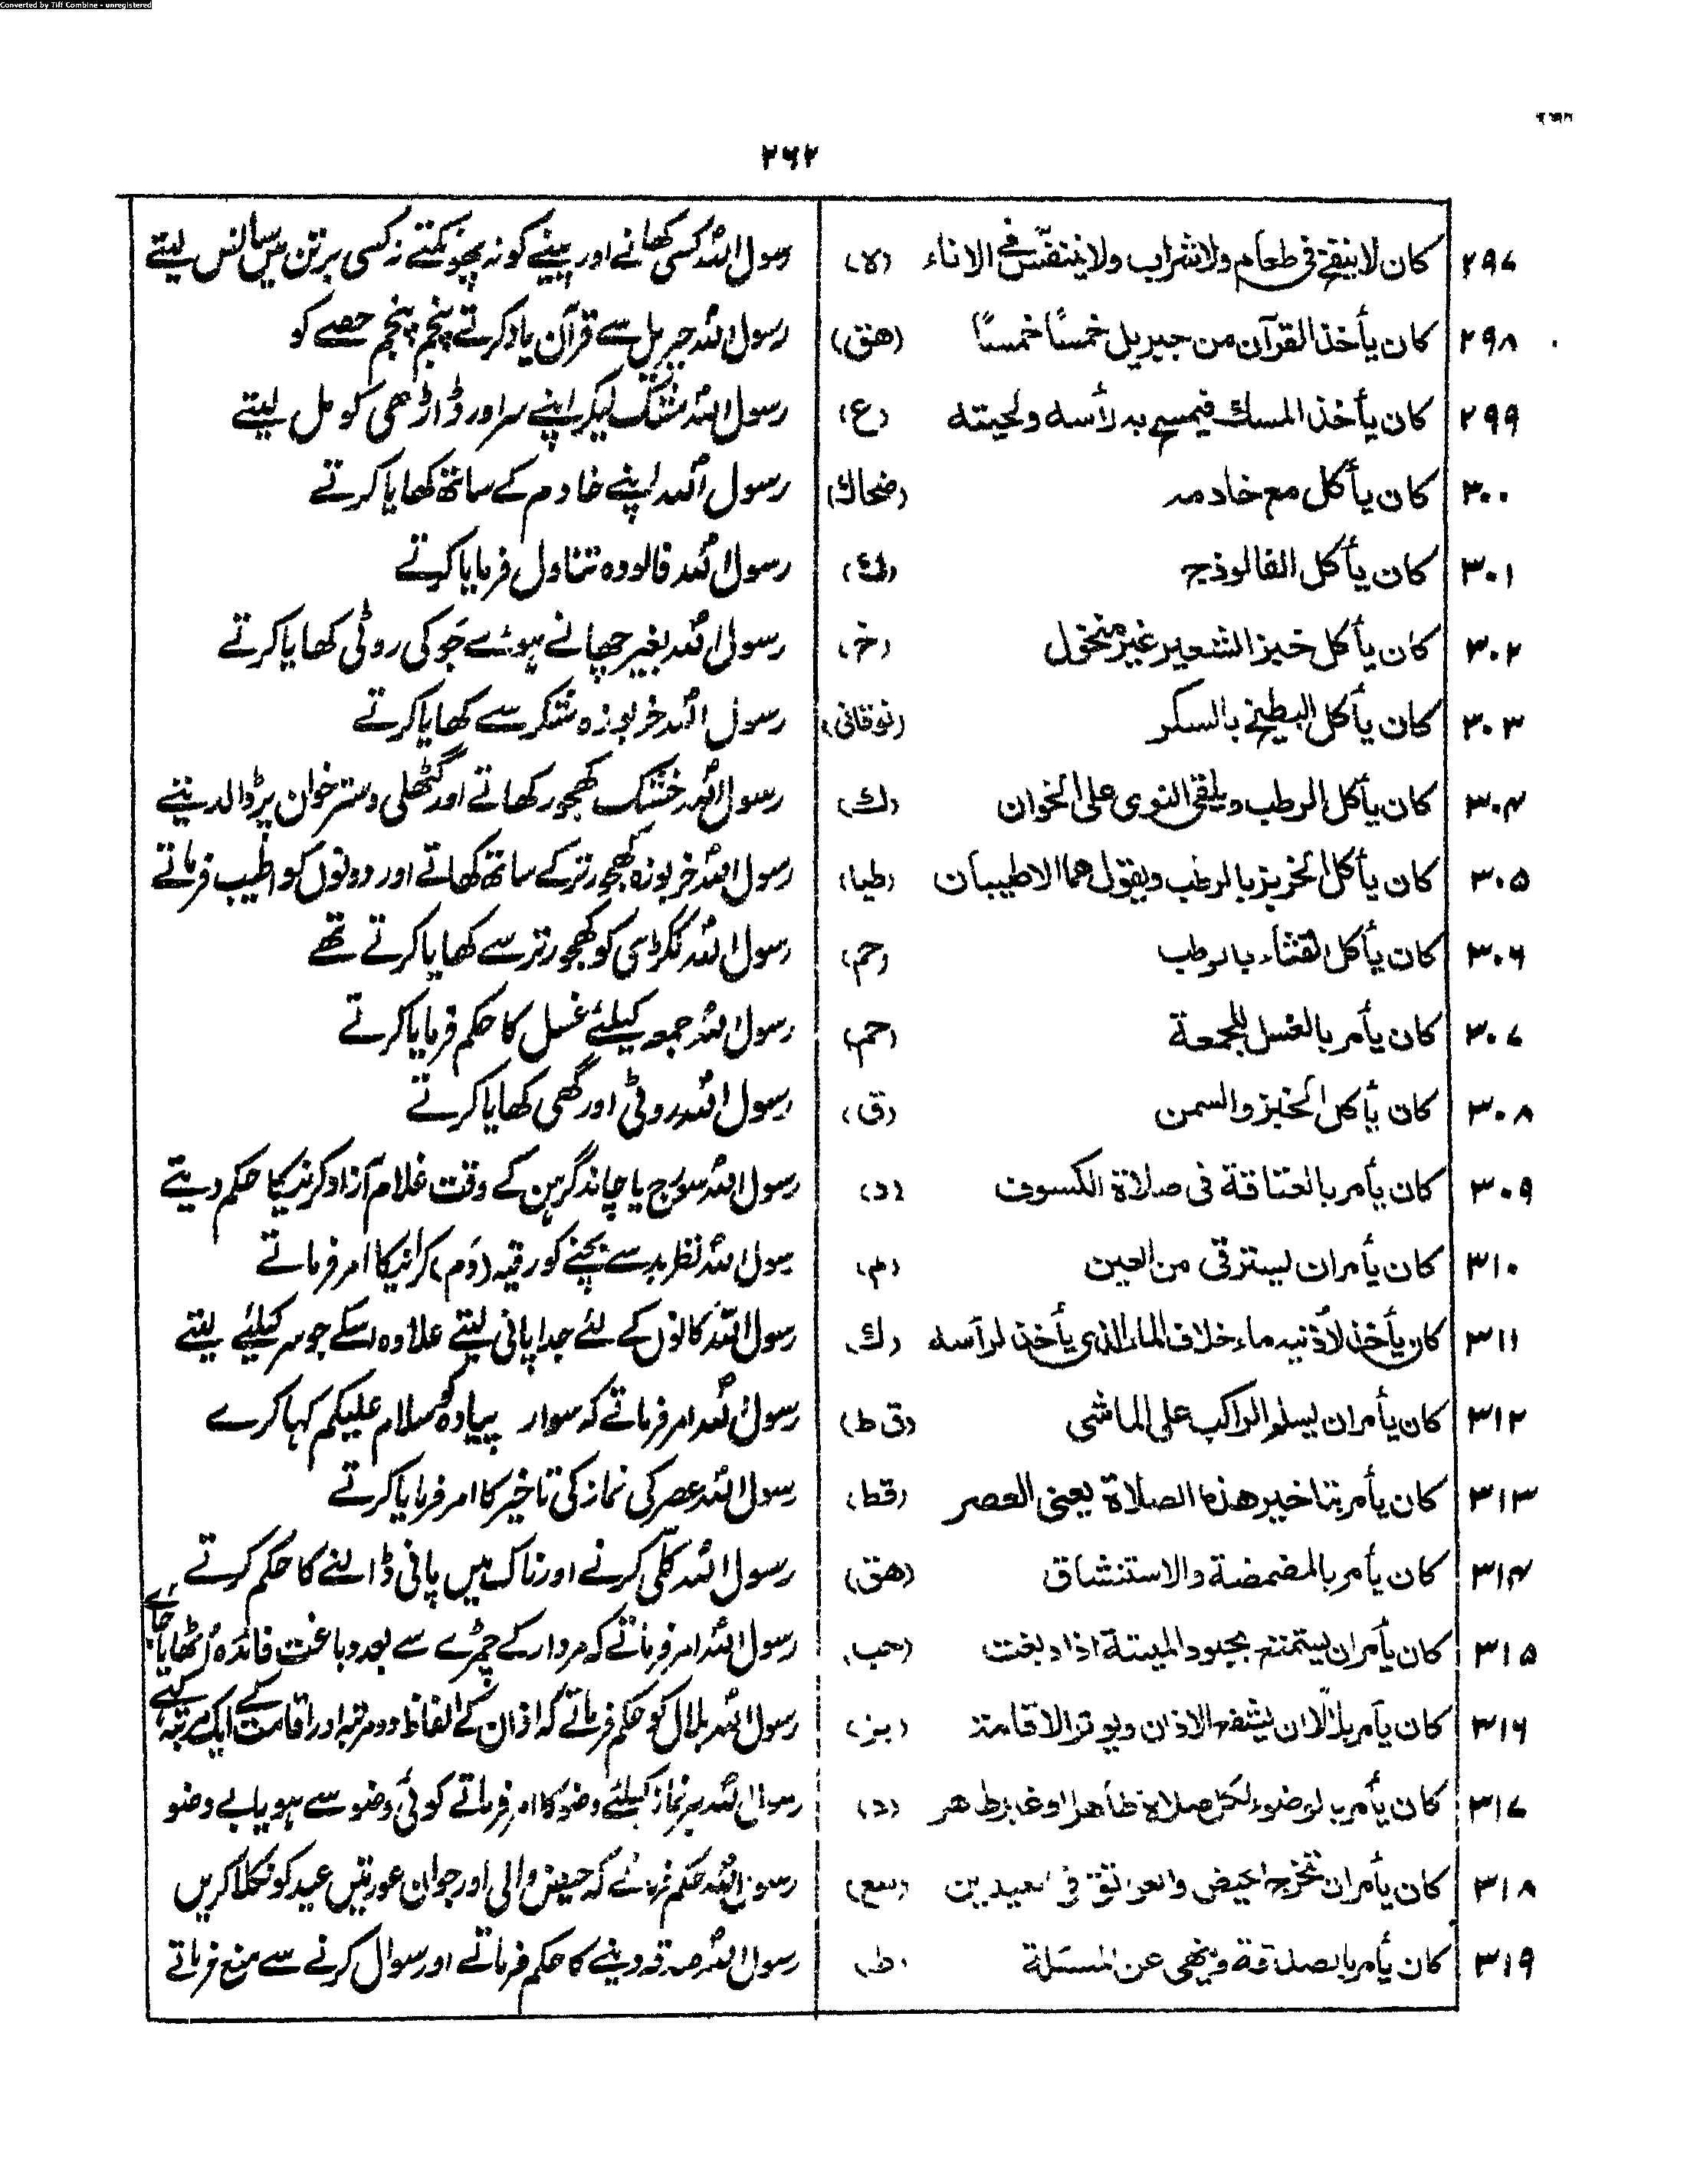 Converted by Tiff Combine - unregistered
۲۶۲
۲۹۷ کان لا ینفخ فی طعام ولا شراب ولا یتنفّس فی الاناء (لا) رسول اللہ کسی کھانے اور پینے کو نہ پھونکتے نہ کسی برتن میں سانس لیتے
۲۹۸ کان یأخذ القرآن من جبریل خمسًا خمسًا (هق) رسول اللہ جبریل سے قرآن یاد کرتے پنجم پنجم حصے کو
۲۹۹ کان یأخذ المسك فیمسح به رأسه ولحیته (ع) رسول اللہ مشک لیکر اپنے سر اور ڈاڑھی کو مل لیتے
۳۰۰ کان یأکل مع خادمه (ضحاك) رسول اللہ اپنے خادم کے ساتھ کھایا کرتے
۳۰۱ کان یأکل الفالوذج رسول اللہ فالودہ تناول فرمایا کرتے
۳۰۲ کان یأکل خبز الشعیر غیر منخول (خ) رسول اللہ بغیر چھانے ہوئے جَو کی روٹی کھایا کرتے
۳۰۳ کان یأکل البطیخ بالسکر (نوقانی) رسول اللہ خربوزہ شکر سے کھایا کرتے
۳۰۴ کان یأکل الرطب ویلقی النوی علی الخوان (ك) رسول اللہ خشک کھجور کھاتے اور گٹھلی دسترخوان پر ڈالدیتے
۳۰۵ کان یأکل الخربز بالرطب ویقول هما الاطیبان (طیا) رسول اللہ خربوزہ کھجور تر کے ساتھ کھاتے اور دونوں کو اطیب فرماتے
۳۰۶ کان یأکل القثاء بالرطب (حم) رسول اللہ ککڑی کو کھجور تر سے کھایا کرتے تھے
۳۰۷ کان یأمر بالغسل للجمعة (حم) رسول اللہ جمعہ کیلئے غسل کا حکم فرمایا کرتے
۳۰۸ کان یأکل الخبز والسمن (ق) رسول اللہ روٹی اور گھی کھایا کرتے
۳۰۹ کان یأمر بالعتاقة فی صلاة الکسوف (د) رسول اللہ سورج یا چاند گرہن کے وقت غلام آزاد کرنیکا حکم دیتے
۳۱۰ کان یأمر ان یسترقی من العین (م) رسول اللہ نظر بد سے بچنے کو رقیہ (دَم) کرانیکا امر فرماتے
۳۱۱ کان یأخذ لأذنیه ماء خلاف الماء الذی یأخذ لرأسه (ك) رسول اللہ کانوں کے لئے جدا پانی لیتے علاوہ اسکے جو سر کیلئے لیتے
۳۱۲ کان یأمر ان یسلم الراکب علی الماشی (ق ط) رسول اللہ امر فرماتے کہ سوار پیادہ کو سلام علیکم کہا کرے
۳۱۳ کان یأمر بتاخیر هذه الصلاة یعنی العصر (قط) رسول اللہ عصر کی نماز کی تاخیر کا امر فرمایا کرتے
۳۱۴ کان یأمر بالمضمضة والاستنشاق (هق) رسول اللہ کلّی کرنے اور ناک میں پانی ڈالنے کا حکم کرتے
۳۱۵ کان یأمر ان یستمتع بجلود المیتة اذا دبغت (حب) رسول اللہ امر فرماتے کہ مردار کے چمڑے سے بعد دباغت فائدہ اُٹھایا جائے
۳۱۶ کان یأمر بلالًا ان یشفع الاذان ویوتر الاقامة (بز) رسول اللہ بلال کو حکم فرماتے کہ اذان کے الفاظ دو مرتبہ اور اقامت کے ایک مرتبہ کہے
۳۱۷ کان یأمر بالوضوء لکل صلاة طاهرا او غیر طاهر (د) رسول اللہ ہر نماز کیلئے وضو کا امر فرماتے کوئی وضو سے ہو یا بے وضو
۳۱۸ کان یأمر ان تخرج الحیض والعواتق فی العیدین رسول اللہ حکم فرماتے کہ حیض والی اور جوان عورتیں عید کو نکلا کریں
۳۱۹ کان یأمر بالصدقة وینهی عن المسئلة (ط) رسول اللہ صدقہ دینے کا حکم فرماتے اور سوال کرنے سے منع فرماتے